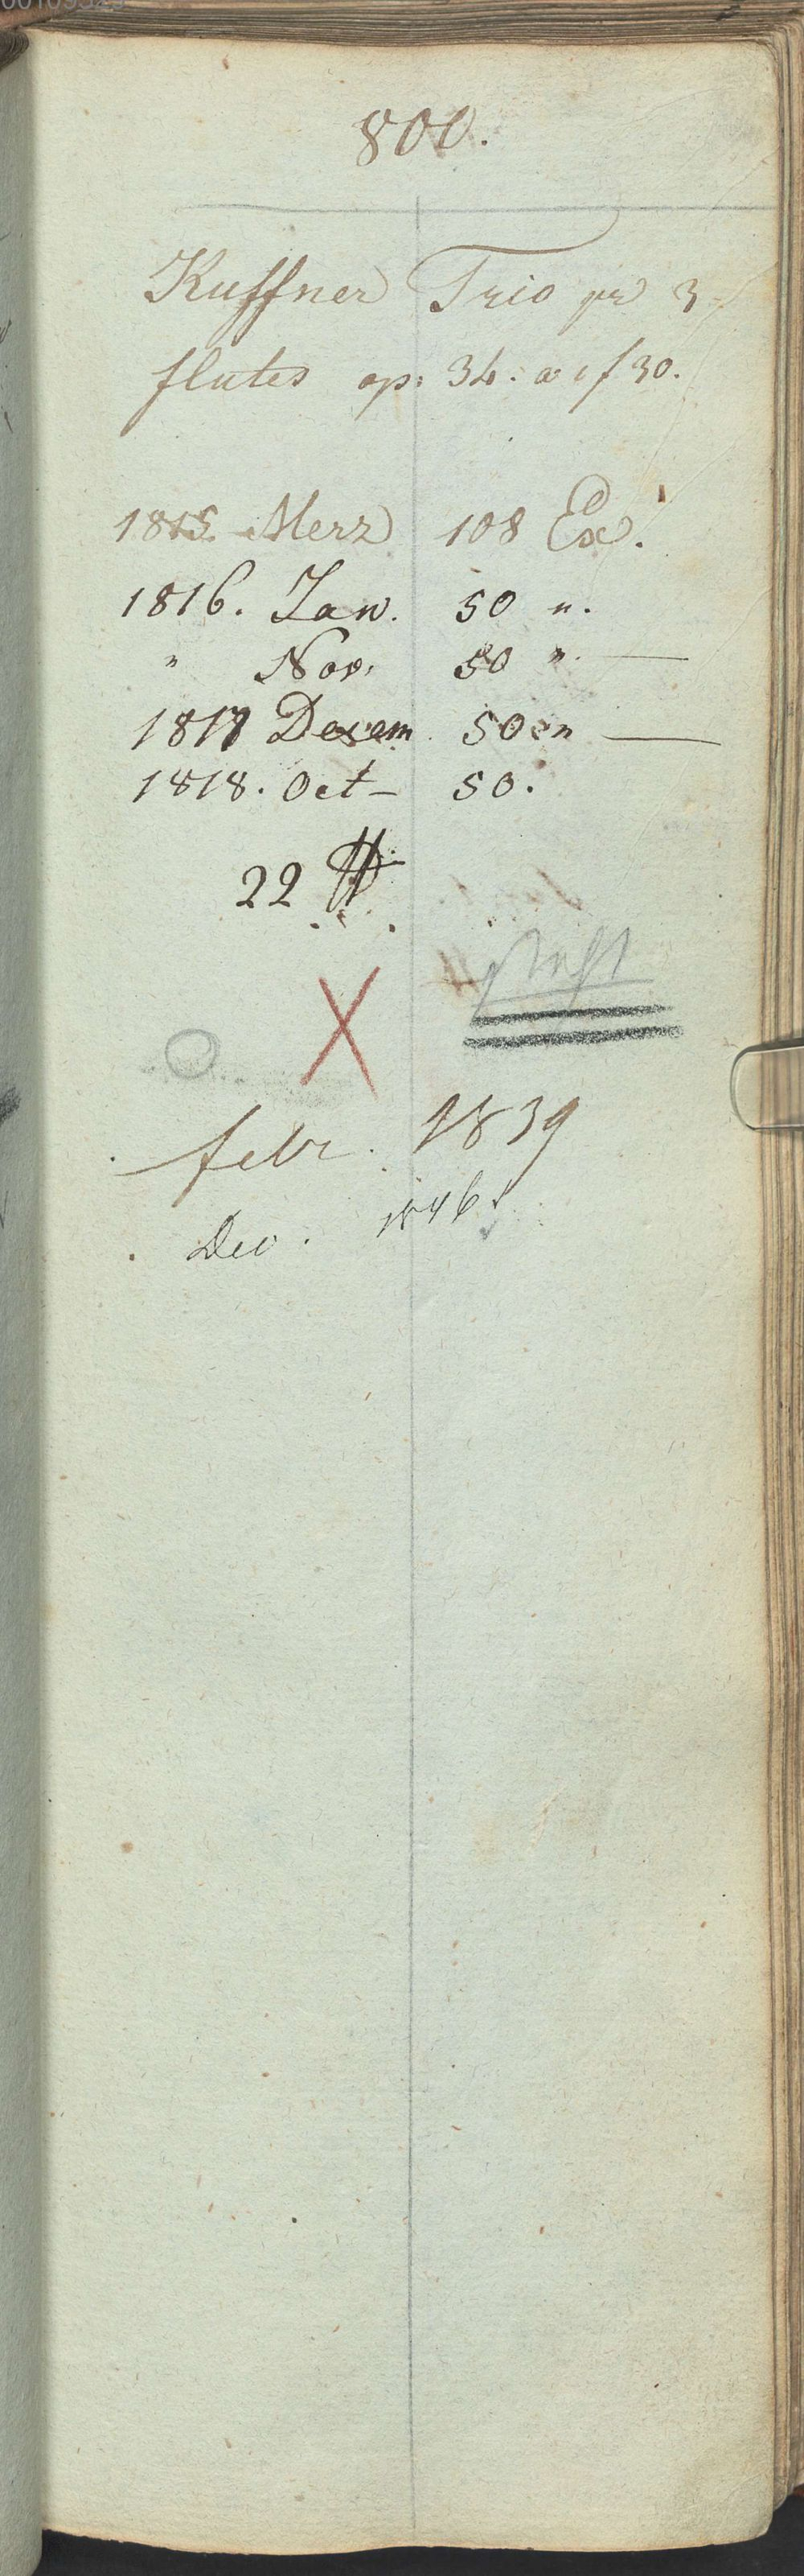 800.
Kuffner Trio pr 3
flutes op: 34. a 1 f 30.
1815. Merz 108 Ex.
1816. Jan. 50 ".
" Nov. 50 ".
1817 Decem. 50 "
1818. Oct - 50.
22 ℔
febr. 1839
Dec. 1846.